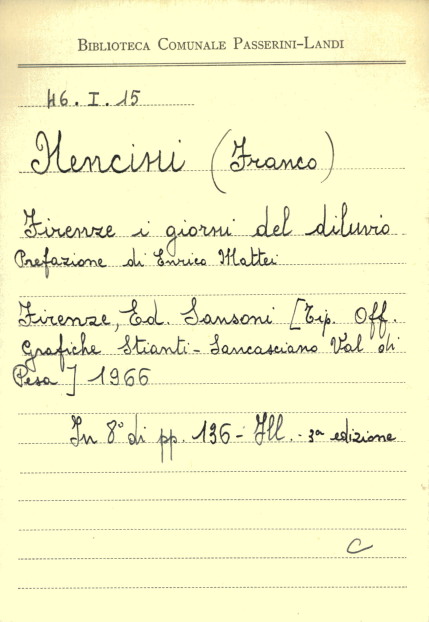 BIBLIOTECA COMUNALE PASSERINI-LANDI
46. I. 15
Nencini (Franco)
Firenze i giorni del diluvio
Prefazione di Enrico Mattei
Firenze, Ed. Sansoni [Tip. Off.
Grafiche Stianti - Sancasciano Val di
Pesa] 1966
In 8° di pp. 136 - Ill. - 3ª edizione
C